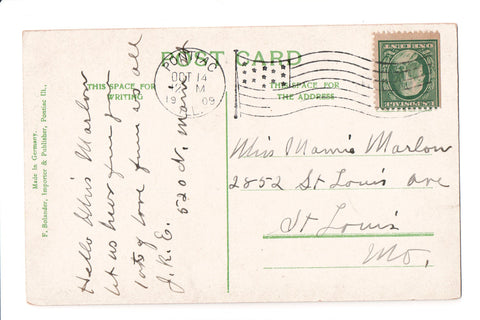 POST CARD
THIS SPACE FOR
WRITING
THIS SPACE FOR
THE ADDRESS
PONTIAC
OCT 14
M
1909
Made in Germany.
F. Bolander, Importer & Publisher, Pontiac Ill.
Hello Miss Marlow
let us hear from you
lots of love from us all
J. R. E. 520 N. Main
Miss Mamie Marlow
2852 St Louis Ave
St Louis
Mo.